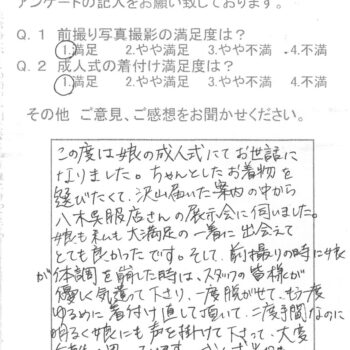 アンケートの記入をお願い致しております。
Q.1 前撮り写真撮影の満足度は?
1.満足 2.やや満足 3.やや不満 4.不満
Q.2 成人式の着付け満足度は?
1.満足 2.やや満足 3.やや不満 4.不満
その他 ご意見、ご感想をお聞かせください。
この度は娘の成人式にてお世話に
なりました。ちゃんとしたお着物を
選びたくて、沢山届いた案内の中から
八木呉服店さんの展示会に伺いました。
娘も私も大満足の一着に出会えて
とても良かったです。そして、前撮りの時に娘
が体調を崩した時は、スタッフの皆様が
優しく気遣って下さり、一度脱がせて、もう一度
ゆるめに着付け直して頂いて、二度手間なのに
明るく娘にも声を掛けて下さって、大変